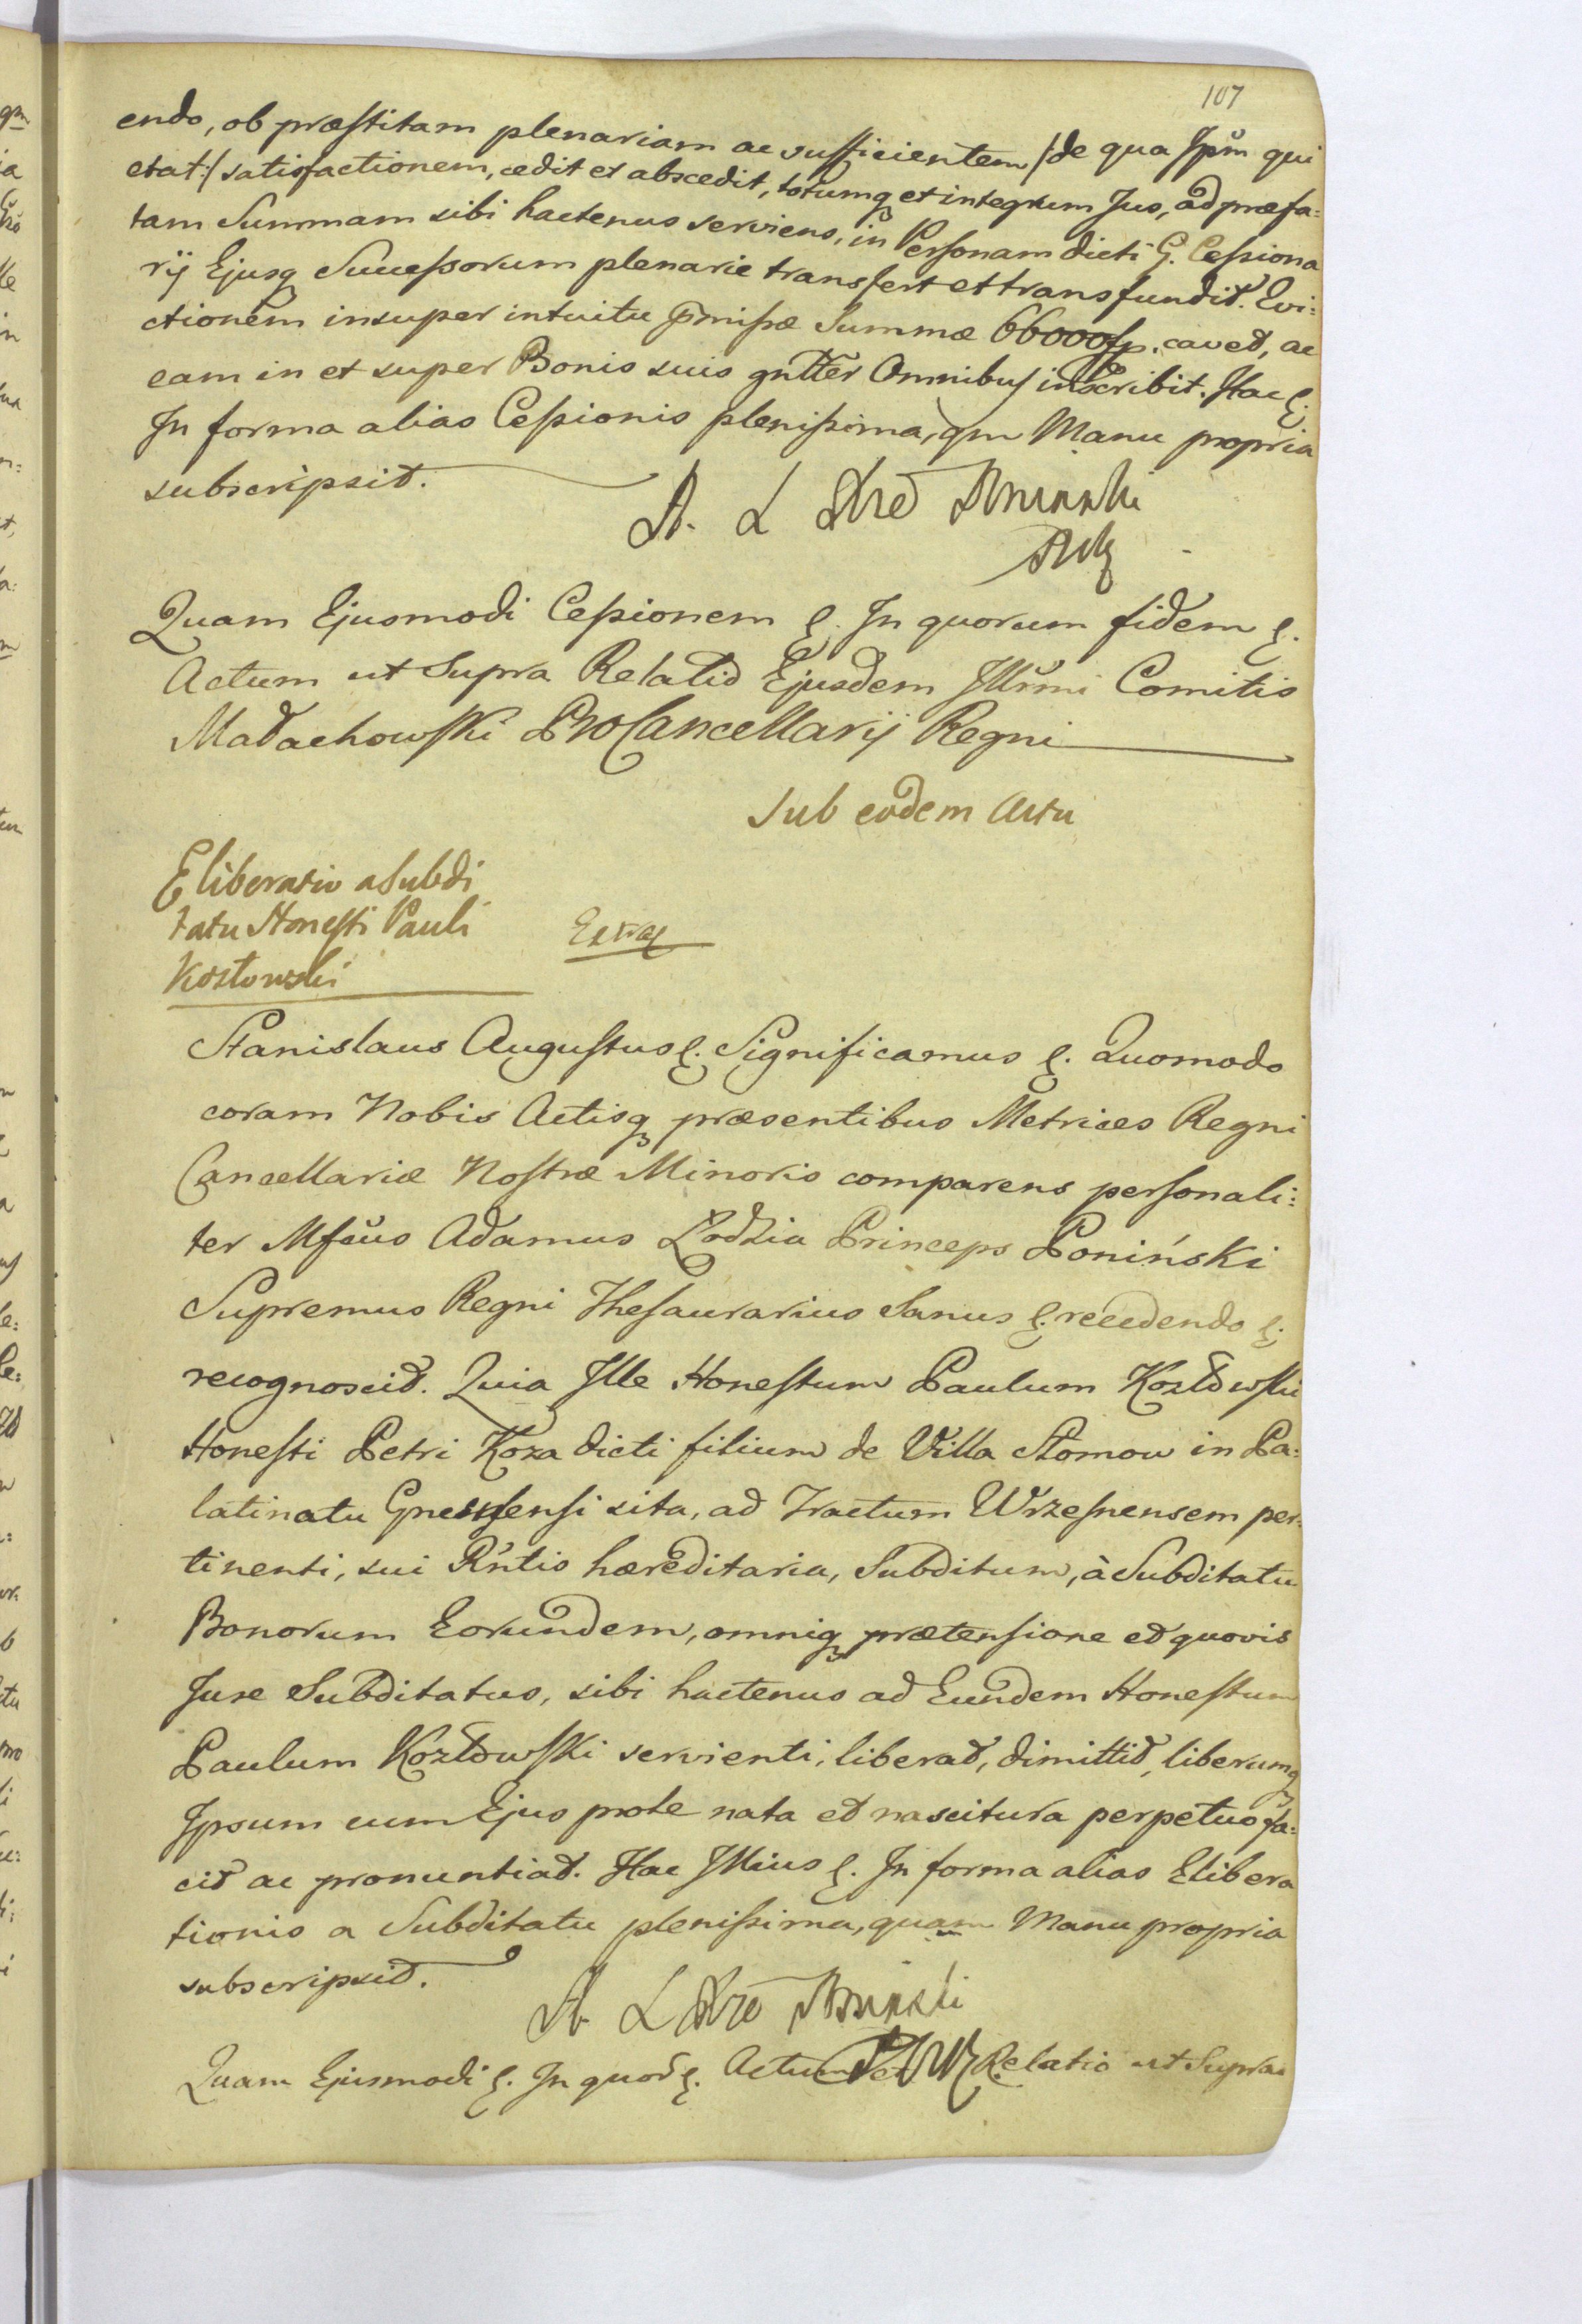 107
endo, ob præstitam plenariam ac sufficientem /de qua Ipsm qui
etat:/ satisfactionem, cedit et abscedit, totumq et integrum Jus, ad præfa:
tam Summam sibi hactenus serviens, in Personam dicti G. Cessiona
rij Ejusq Successorum plenarie transfert et transfundit. Evi:
ctionem insuper intuitu pmissæ Summæ 66000 fp. cavet, ac
eam in et super Bonis suis gnltter Omnibus inscribit. Hac &.
In forma alias Cessionis plenissima, qm Manu propria
subscripsit.
A. L
Quam Ejusmodi Cessionem &. In quorum fidem &.
Actum ut Supra Relatio Ejusdem Illrmi Comitis
Małachowski ProCancellarij Regni
Sub eodem Actu
Eliberatio a Subdi
tatu Honesti Pauli
Kozłowski
Stanislaus Augustus &. Significamus &. Quomodo
coram Nobis Actisq præsentibus Metrices Regni
Cancellariæ Nostræ Minoris comparens personali:
ter Mfcus Adamus Łodzia Princeps Poniński
Supremus Regni Thesaurarius Sanus &. recedendo &.
recognoscit. Quia Ille Honestum Paulum Kozłowski
Honesti Petri Koza dicti filium de Villa Słomow in Pa:
latinatu Gnesnensi sita, ad Tractum Wrzesnensem per:
tinenti, sui Rntis hæreditaria, Subditum, à Subditatu
Bonorum Eorundem, omniq prætensione et quovis
Jure Subditatus, sibi hactenus ad Eundem Honestum
Paulum Kozłowski servienti, liberat, dimittit, liberumq
Ipsum cum Ejus prole nata et nascitura perpetuo fa:
cit ac pronuntiat. Hac Illius &. In forma alias Elibera
tionis a Subditatu plenissima, quam Manu propria
subscripsit.
A. L
Quam Ejusmodi &. In quor &. Actum Relatio ut Supra